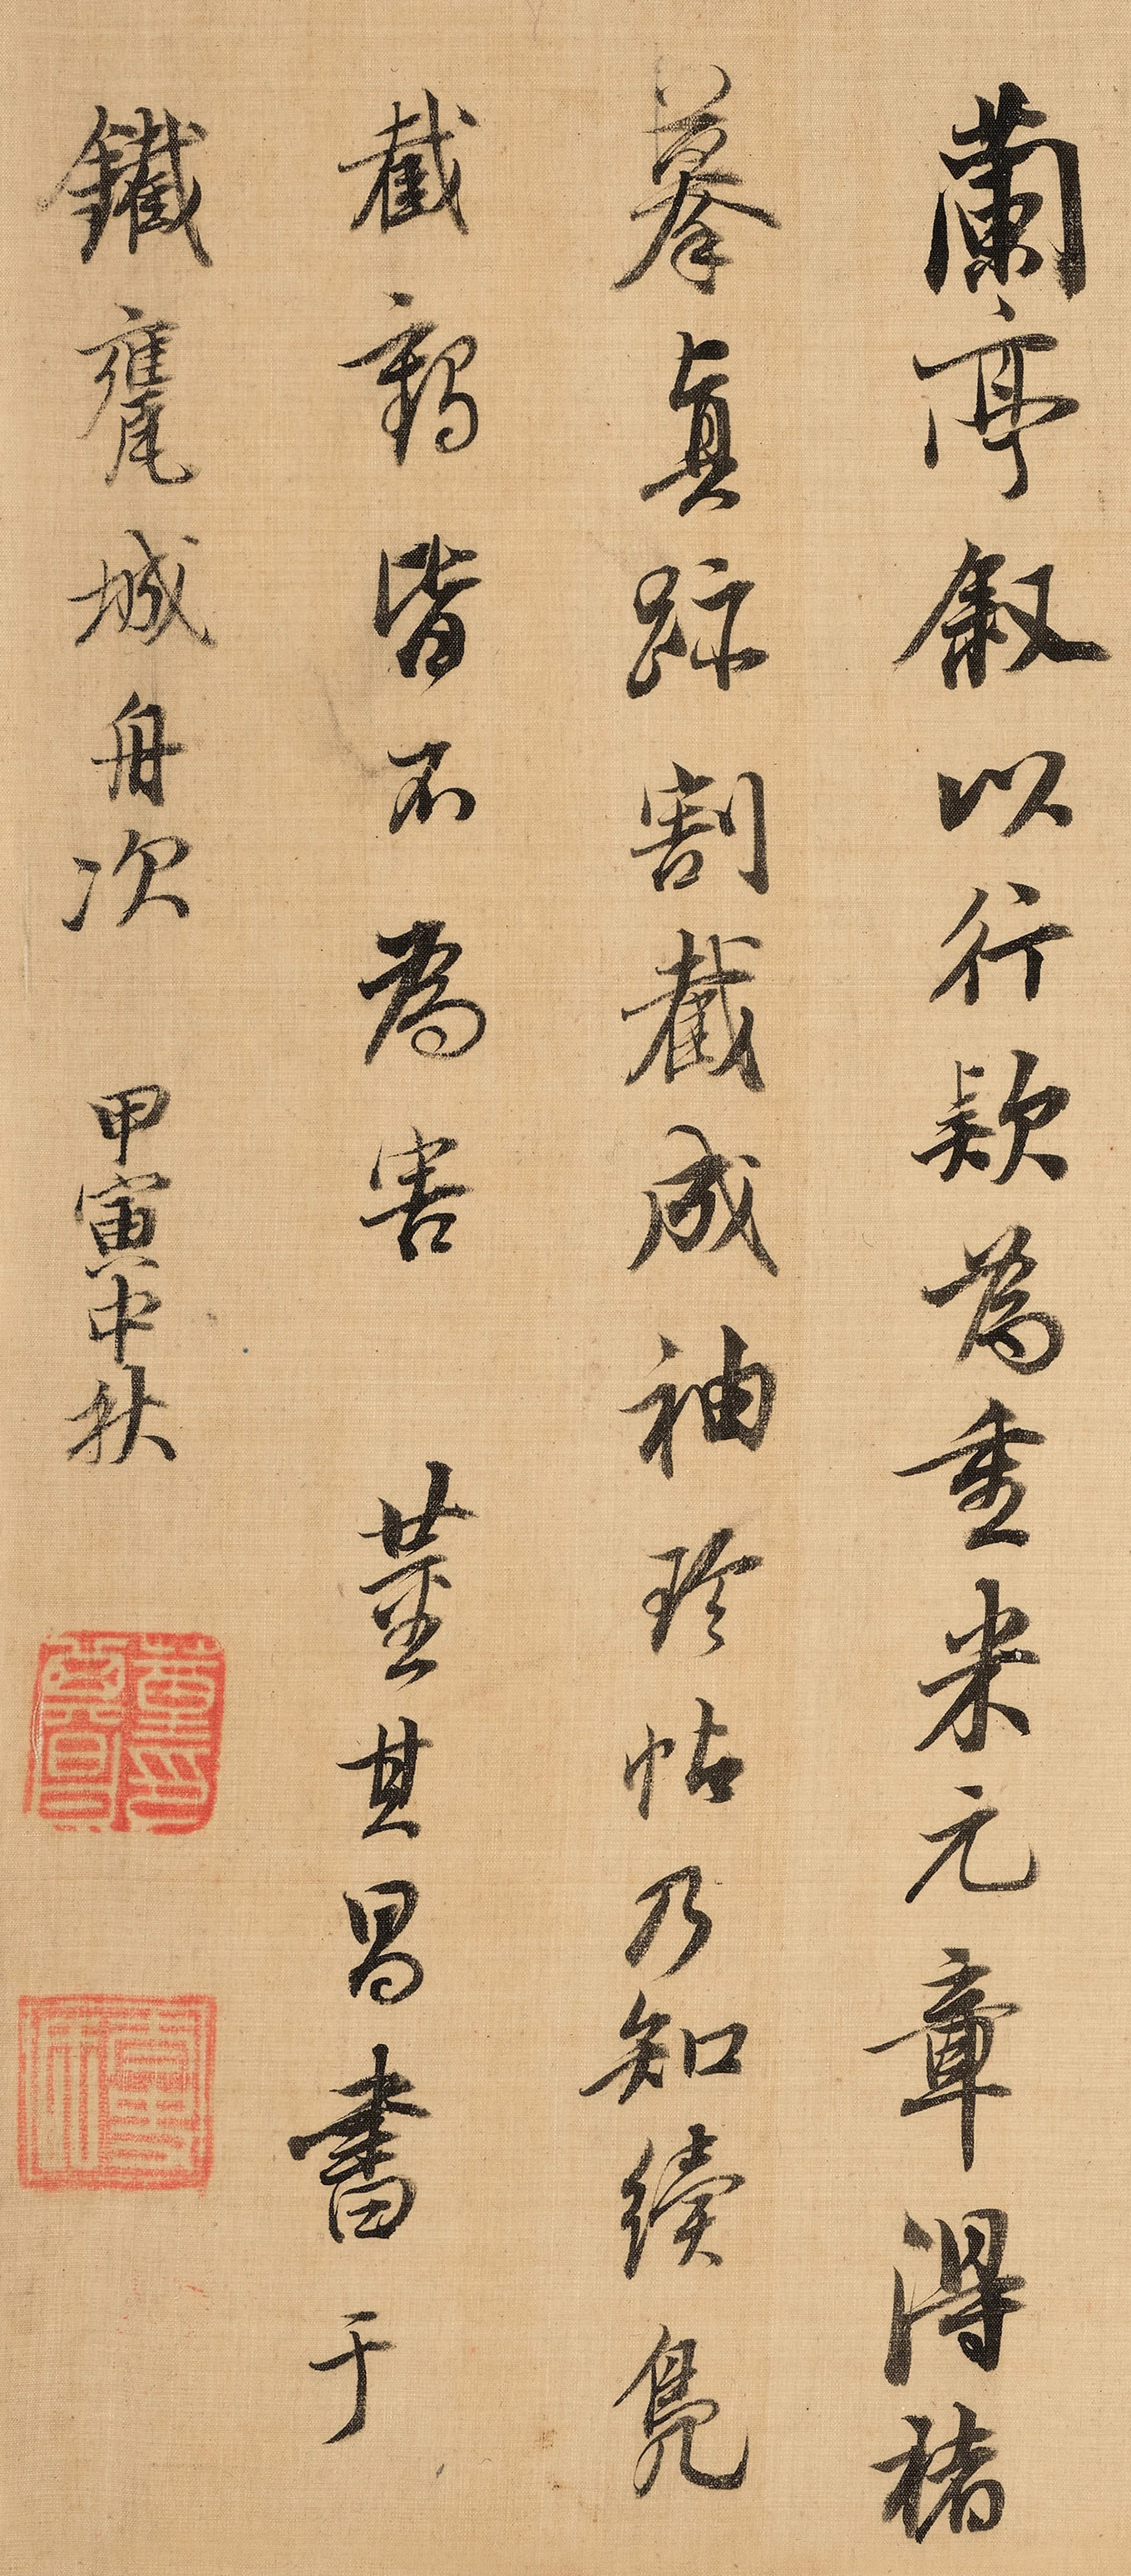 蘭亭叙以行款為重米元章得褚
摹真跡割截成袖珍帖乃知續鳧
截鶴皆不為害 董其昌書于
鐵甕城舟次 甲寅中秋